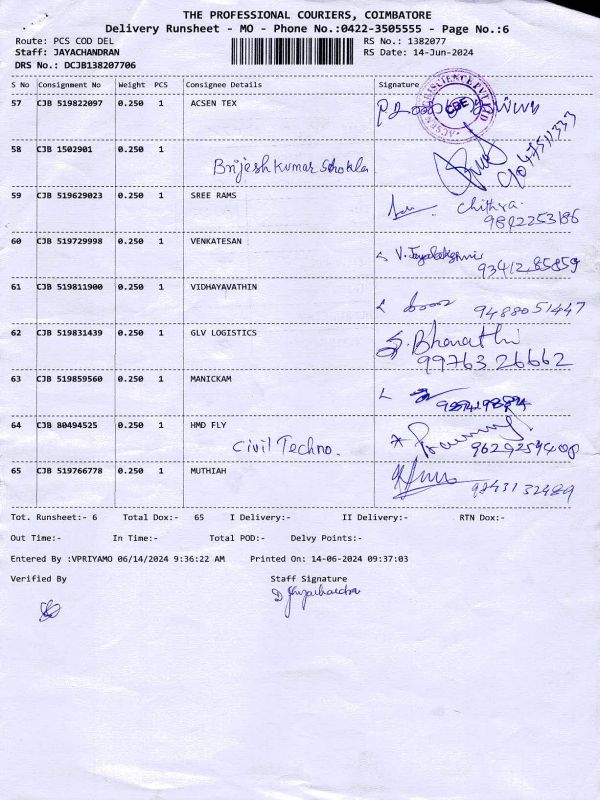 THE PROFESSIONAL COURIERS, COIMBATORE
Delivery Runsheet - MO - Phone No.:0422-3505555 - Page No.:6
Route: PCS COD DEL RS No.: 1382077
Staff: JAYACHANDRAN RS Date: 14-Jun-2024
DRS No.: DCJB138207706
S No Consignment No Weight PCS Consignee Details Signature
57 CJB 519822097 0.250 1 ACSEN TEX
CBE
58 CJB 1502901 0.250 1
Brijesh Kumar
59 CJB 519629023 0.250 1 SREE RAMS Chithra
9842253186
60 CJB 519729998 0.250 1 VENKATESAN V. Jayalakshmi
93412 85859
61 CJB 519811900 0.250 1 VIDHAYAVATHIN
9488051447
62 CJB 519831439 0.250 1 GLV LOGISTICS S. Bharathi
99763 26662
63 CJB 519859560 0.250 1 MANICKAM
64 CJB 80494525 0.250 1 HMD FLY
Civil Techno. 9629259408
65 CJB 519766778 0.250 1 MUTHIAH
9843132489
Tot. Runsheet:- 6 Total Dox:- 65 I Delivery:- II Delivery:- RTN Dox:-
Out Time:- In Time:- Total POD:- Delvy Points:-
Entered By :VPRIYAMO 06/14/2024 9:36:22 AM Printed On: 14-06-2024 09:37:03
Verified By Staff Signature